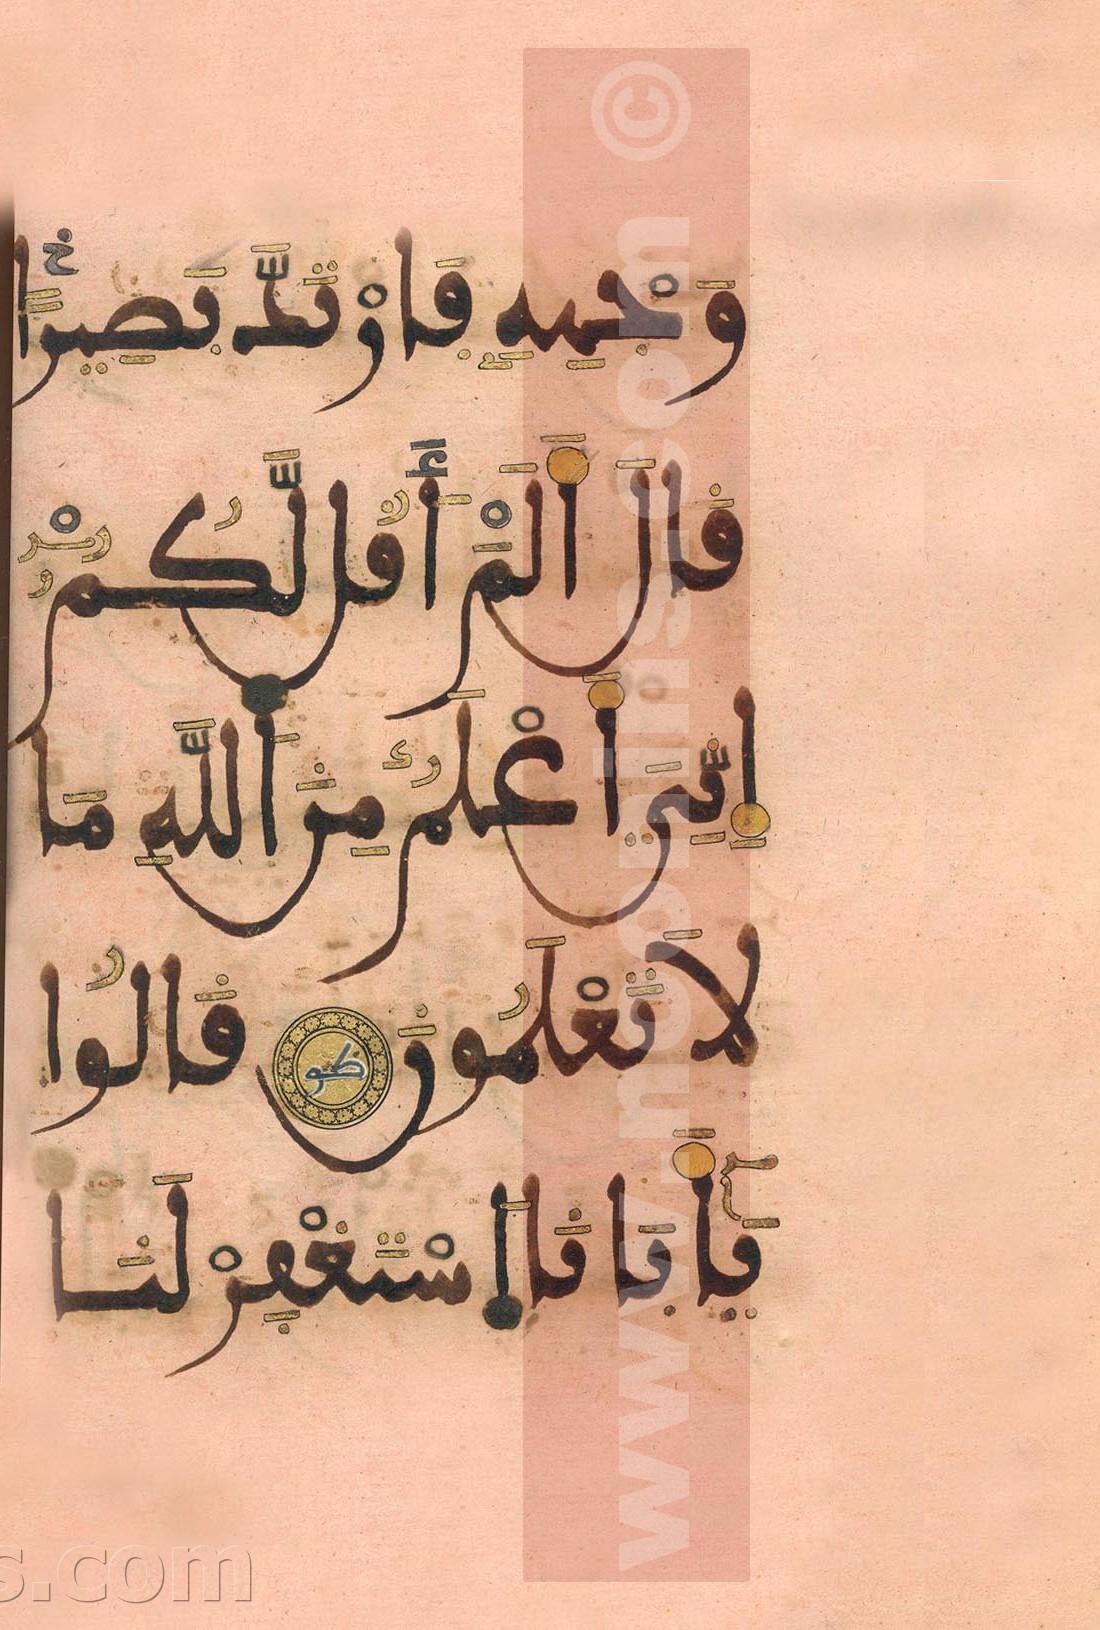 وَجْهِهِ فَارْتَدَّ بَصِيرًا
قَالَ أَلَمْ أَقُل لَّكُمْ
إِنِّي أَعْلَمُ مِنَ اللَّهِ مَا
لَا تَعْلَمُونَ قَالُوا
يَا أَبَانَا اسْتَغْفِرْ لَنَا
© www.noonins.com
s.com